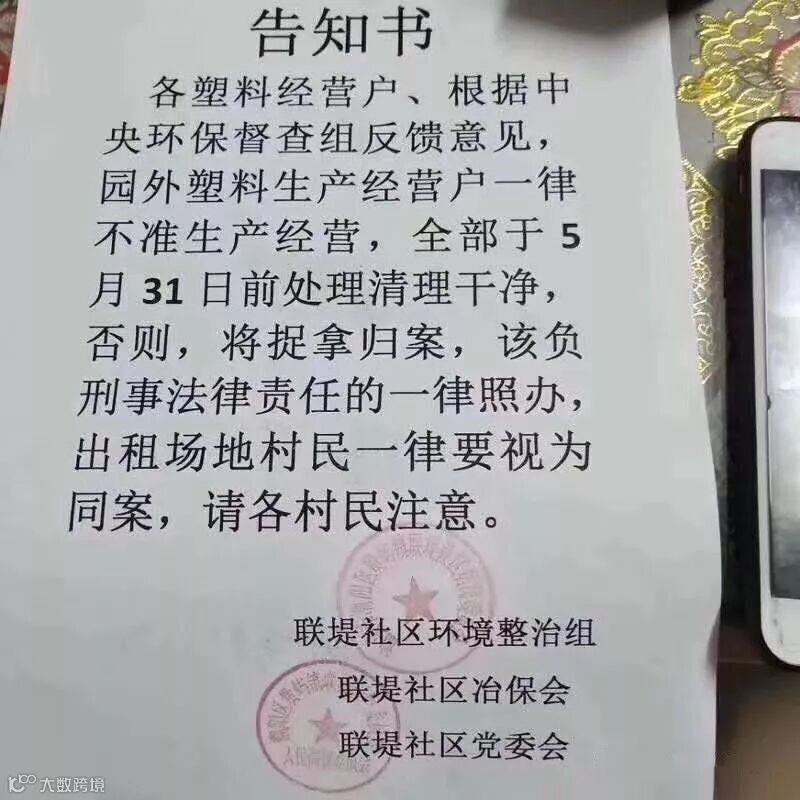 告知书
各塑料经营户、根据中
央环保督查组反馈意见，
园外塑料生产经营户一律
不准生产经营，全部于 5
月 31 日前处理清理干净，
否则，将捉拿归案，该负
刑事法律责任的一律照办，
出租场地村民一律要视为
同案，请各村民注意。
联堤社区环境整治组
联堤社区冶保会
联堤社区党委会
大数跨境